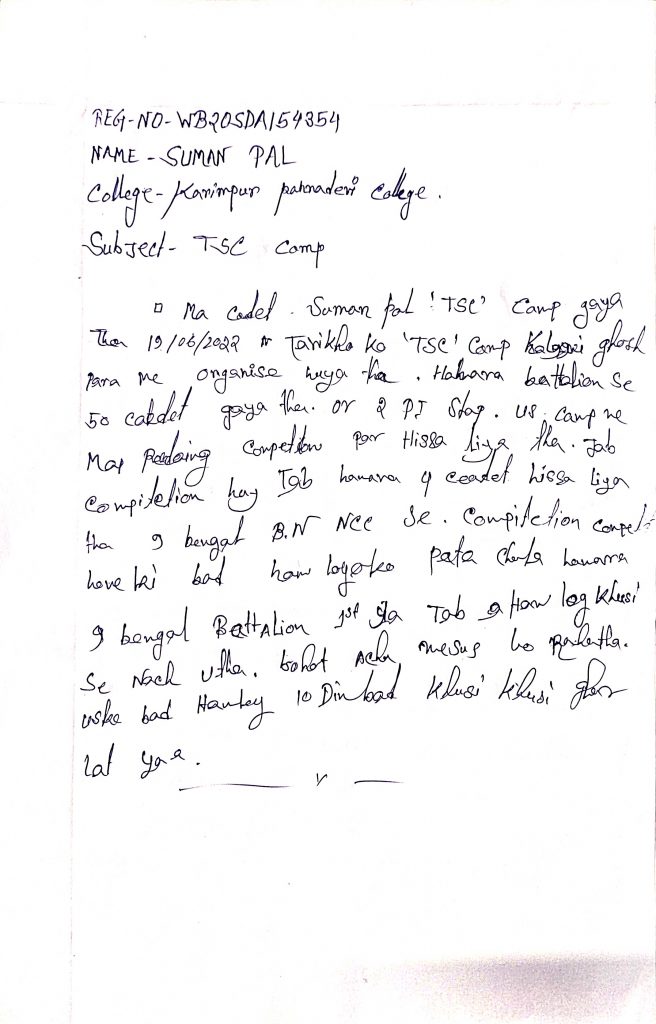 REG-NO-WB20SDA154354
NAME - SUMAN PAL
College - Karimpur pannadevi college.
Subject - TSC Camp
Ma cadet. Suman pal 'TSC' Camp gaya
tha 19/06/2022 Tarikha ko 'TSC' Camp ghosh
para me organise huya tha. Hamara battalion se
50 caddet gaya tha. or 2 PI Staf. us camp me
May Competion par Hissa liya tha. Jab
Compitetion huy Tab hamara 4 ceadet hissa liya
tha 9 bengal B.N NCC Se. Compitetion
hone ki bad ham logoko pata chala hamara
9 bengal BattAlion 1st Tab Ham log khusi
Se Nach utha. bohot acha mesus ho Rahatha.
uske bad Hamley 10 Din bad khusi khusi ghor
lat yaa.